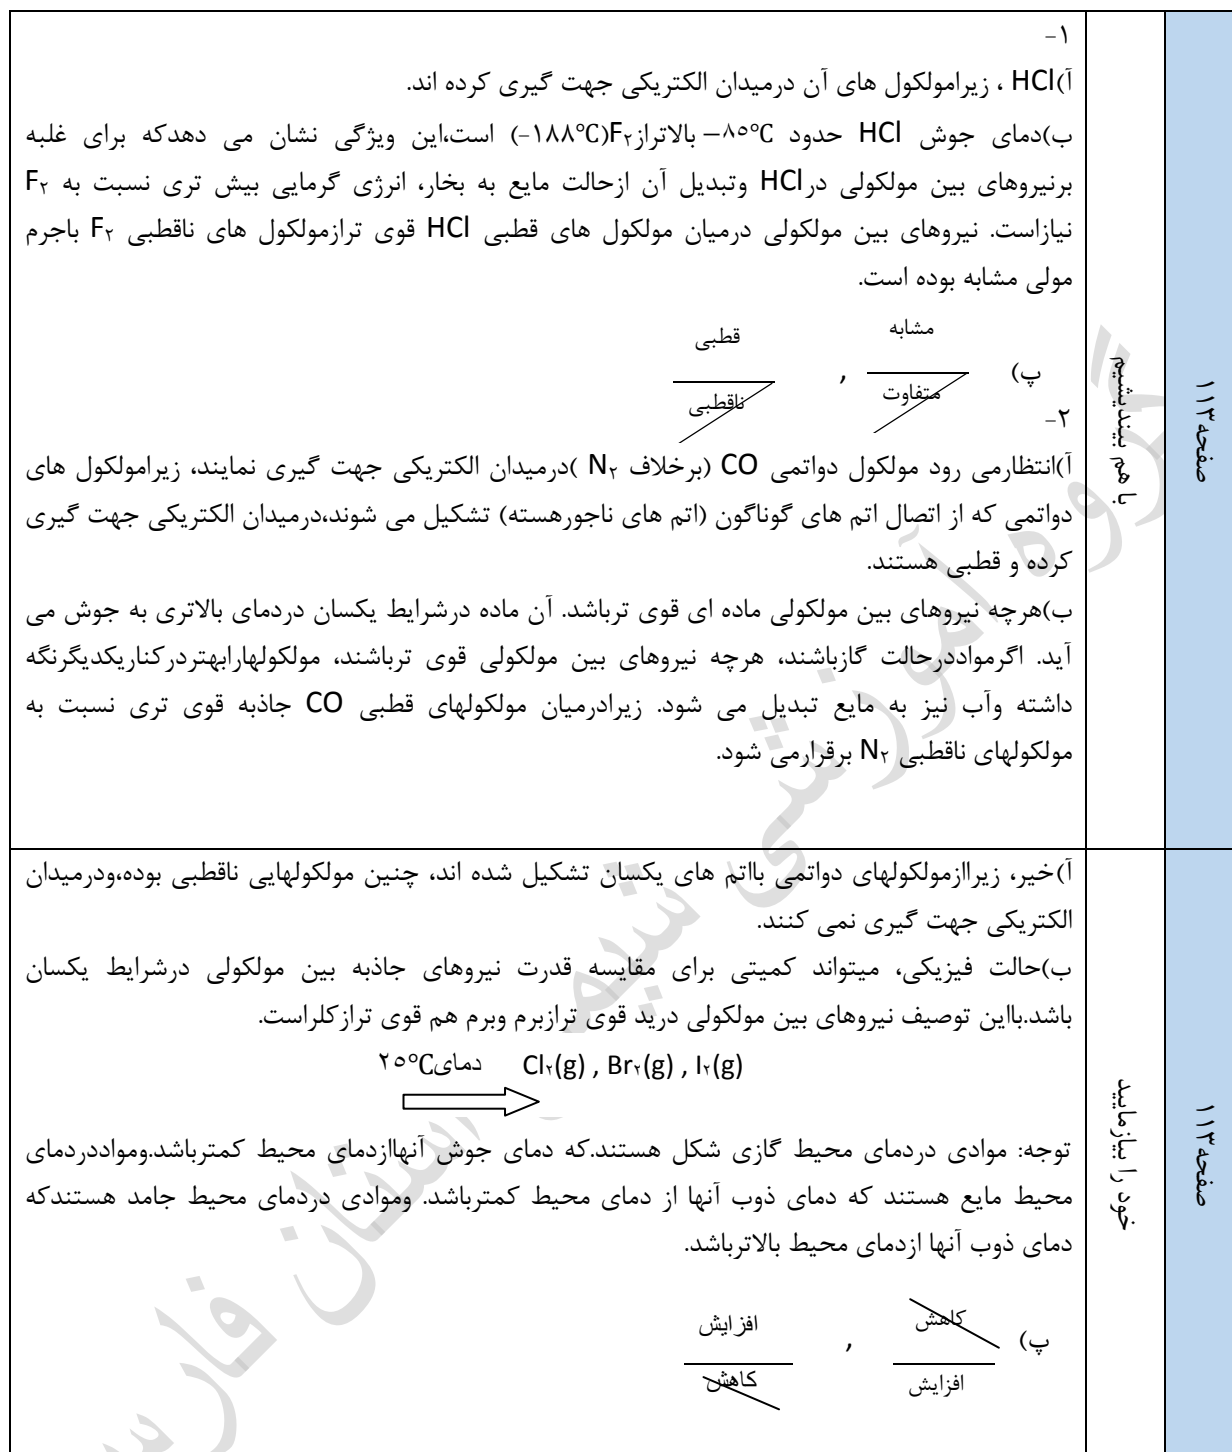 صفحه ۱۱۳
با هم بیندیشیم
۱-
آ)HCl ، زیرامولکول های آن درمیدان الکتریکی جهت گیری کرده اند.
ب)دمای جوش HCl حدود ۸۵°C– بالاتراز F۲(-۱۸۸°C) است،این ویژگی نشان می دهدکه برای غلبه
برنیروهای بین مولکولی درHCl وتبدیل آن ازحالت مایع به بخار، انرژی گرمایی بیش تری نسبت به F۲
نیازاست. نیروهای بین مولکولی درمیان مولکول های قطبی HCl قوی ترازمولکول های ناقطبی F۲ باجرم
مولی مشابه بوده است.
پ) مشابه / متفاوت , قطبی / ناقطبی
۲-
آ)انتظارمی رود مولکول دواتمی CO (برخلاف N۲ )درمیدان الکتریکی جهت گیری نمایند، زیرامولکول های
دواتمی که از اتصال اتم های گوناگون (اتم های ناجورهسته) تشکیل می شوند،درمیدان الکتریکی جهت گیری
کرده و قطبی هستند.
ب)هرچه نیروهای بین مولکولی ماده ای قوی ترباشد. آن ماده درشرایط یکسان دردمای بالاتری به جوش می
آید. اگرمواددرحالت گازباشند، هرچه نیروهای بین مولکولی قوی ترباشند، مولکولهارابهتردرکناریکدیگرنگه
داشته وآب نیز به مایع تبدیل می شود. زیرادرمیان مولکولهای قطبی CO جاذبه قوی تری نسبت به
مولکولهای ناقطبی N۲ برقرارمی شود.
صفحه ۱۱۳
خود را بیازمایید
آ)خیر، زیراازمولکولهای دواتمی بااتم های یکسان تشکیل شده اند، چنین مولکولهایی ناقطبی بوده،ودرمیدان
الکتریکی جهت گیری نمی کنند.
ب)حالت فیزیکی، میتواند کمیتی برای مقایسه قدرت نیروهای جاذبه بین مولکولی درشرایط یکسان
باشد.بااین توصیف نیروهای بین مولکولی درید قوی ترازبرم وبرم هم قوی ترازکلراست.
دمای۲۵°C Cl۲(g) , Br۲(g) , I۲(g)
توجه: موادی دردمای محیط گازی شکل هستند.که دمای جوش آنهاازدمای محیط کمترباشد.ومواددردمای
محیط مایع هستند که دمای ذوب آنها از دمای محیط کمترباشد. وموادی دردمای محیط جامد هستندکه
دمای ذوب آنها ازدمای محیط بالاترباشد.
پ) کاهش / افزایش , افزایش / کاهش
گروه آموزشی شیمی استان فارس